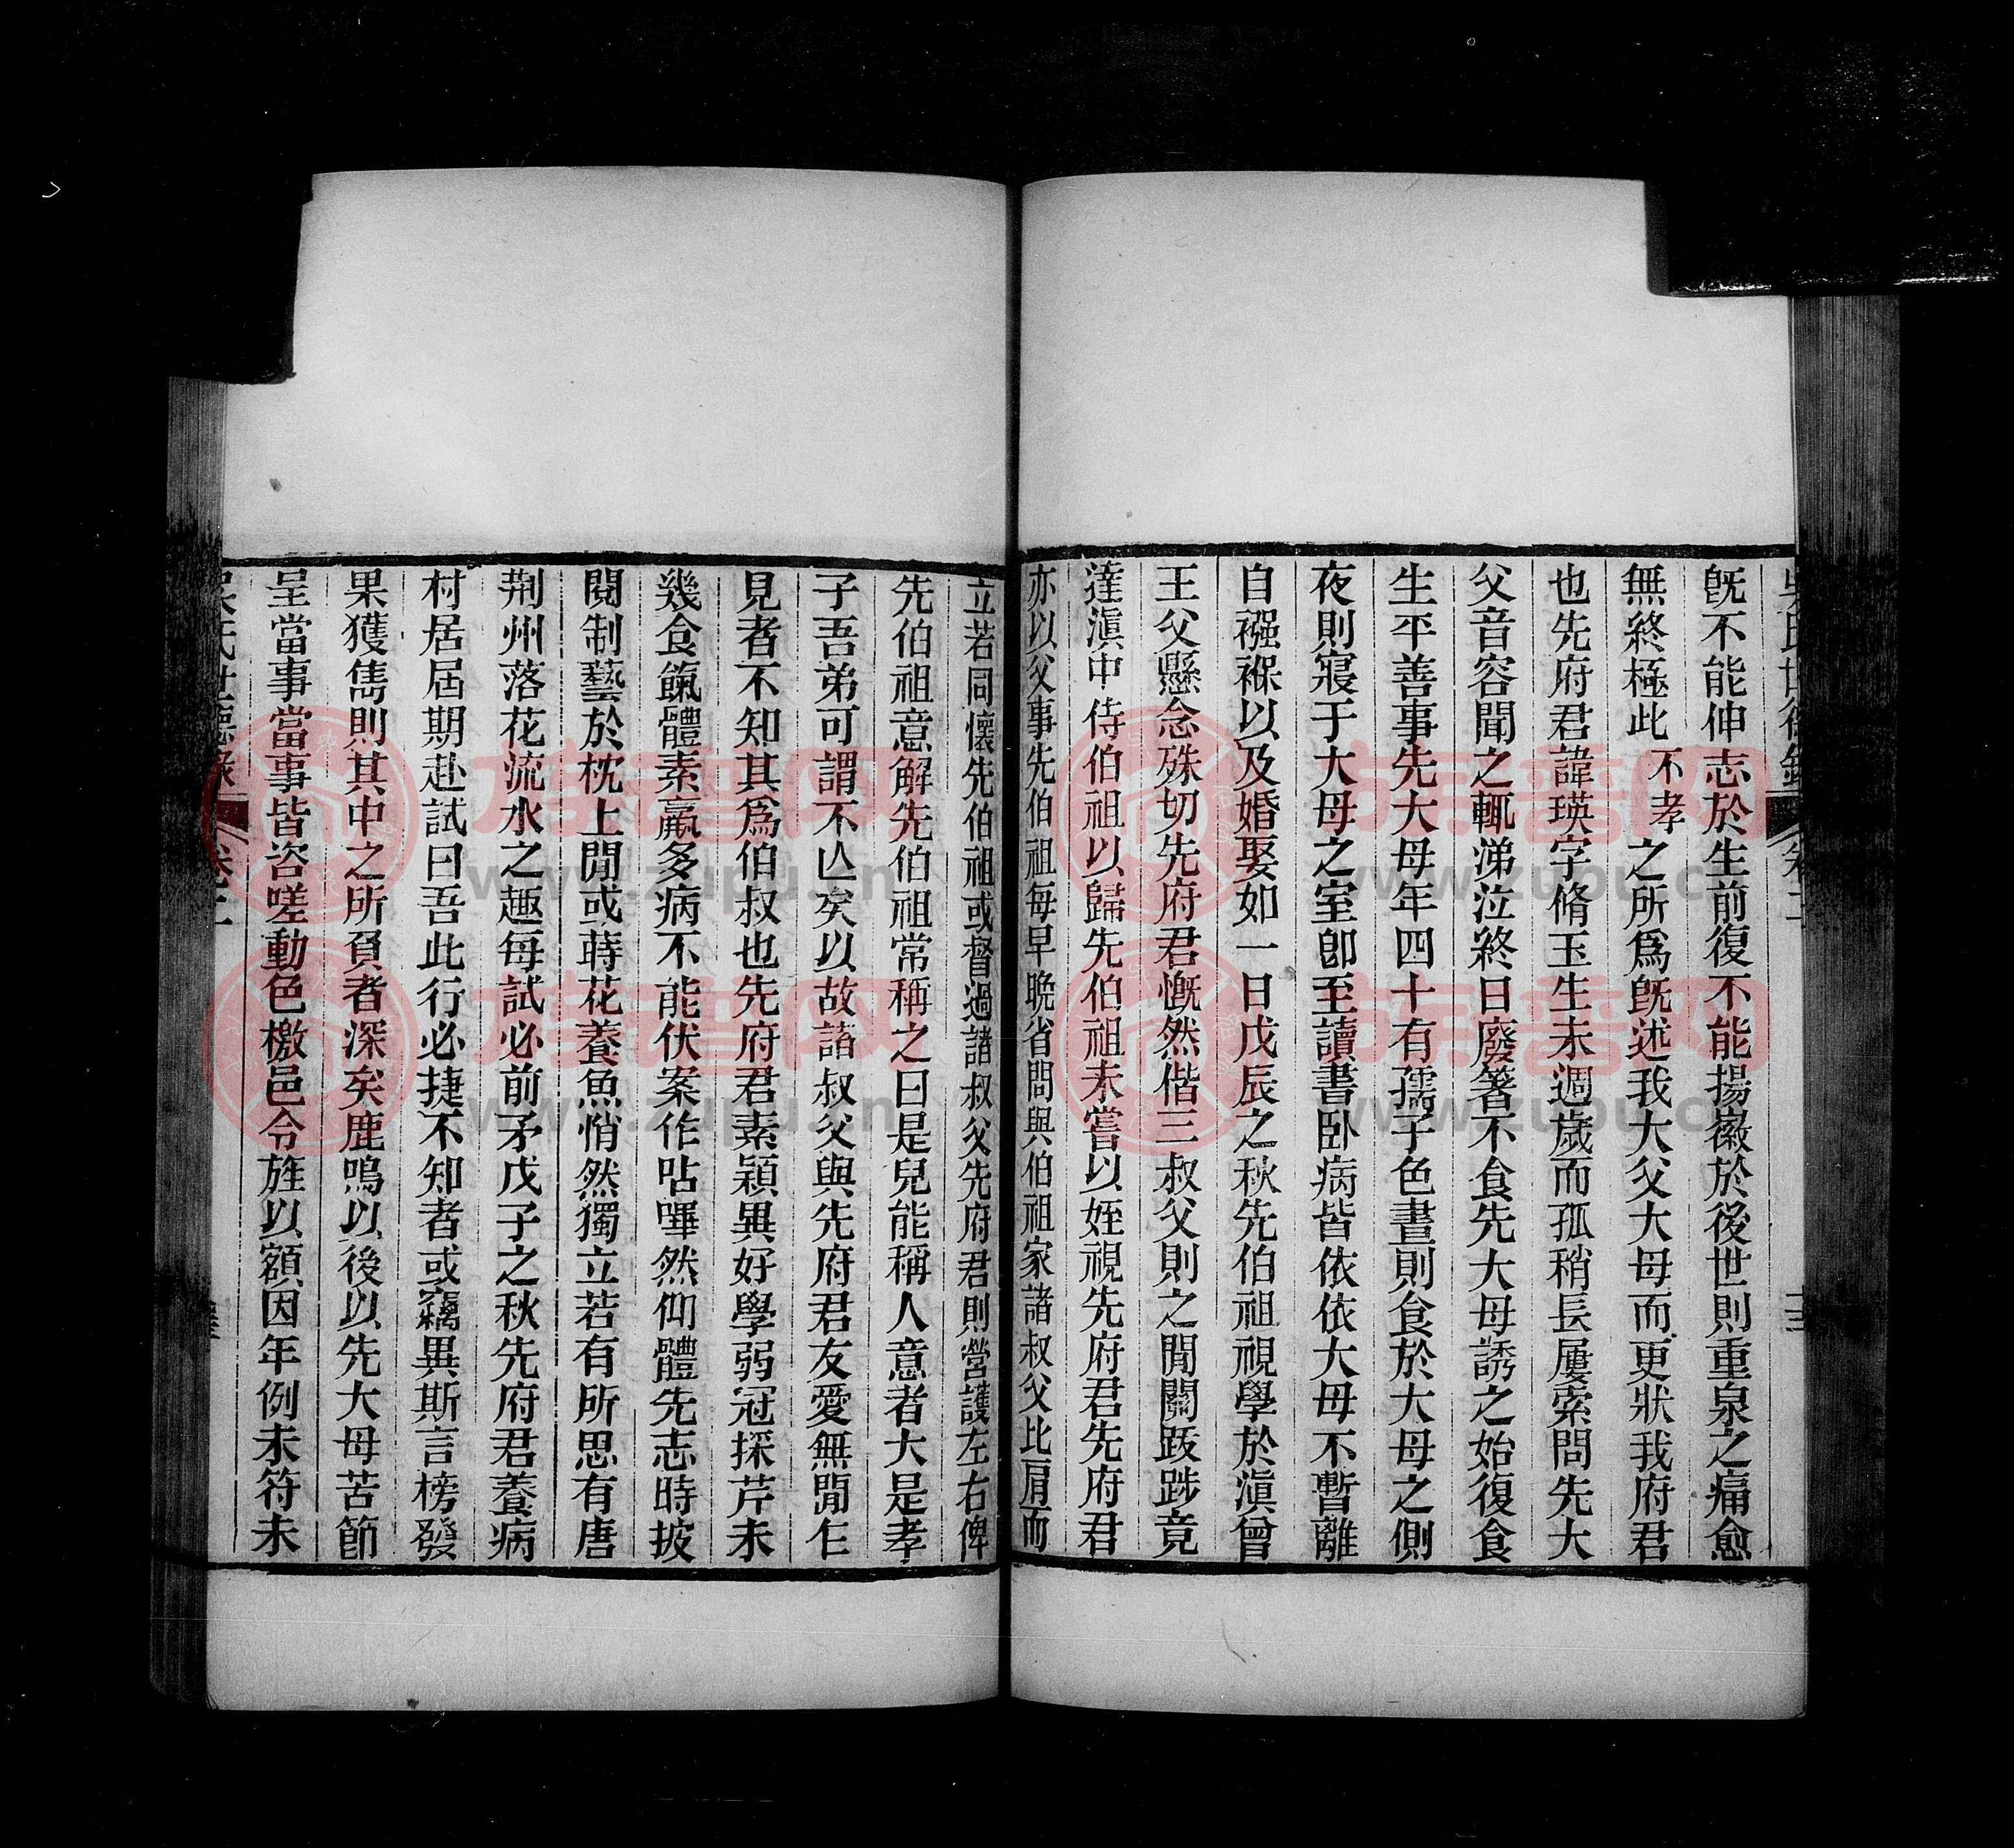 吳氏世德錄 卷二
旣不能伸志於生前復不能揚徽於後世則重泉之痛愈
無終極此不孝之所爲旣述我大父大母而更狀我府君
也先府君諱瑛字脩玉生未週歲而孤稍長屢索問先大
父音容聞之輒涕泣終日廢箸不食先大母誘之始復食
生平善事先大母年四十有孺子色晝則食於大母之側
夜則寢于大母之室卽至讀書卧病皆依依大母不暫離
自襁褓以及婚娶如一日戊辰之秋先伯祖視學於滇曾
王父懸念殊切先府君慨然偕三叔父則之間關跋踄竟
達滇中侍伯祖以歸先伯祖未嘗以姪視先府君先府君
亦以父事先伯祖每早晚省問與伯祖家諸叔父比肩而
立若同懷先伯祖或督過諸叔父先府君則營護左右俾
先伯祖意解先伯祖常稱之曰是兒能稱人意者大是孝
子吾弟可謂不亾矣以故諸叔父與先府君友愛無間乍
見者不知其爲伯叔也先府君素穎異好學弱冠採芹未
幾食餼體素羸多病不能伏案作呫嗶然仰體先志時披
閱制藝於枕上閒或蒔花養魚悄然獨立若有所思有唐
荆州落花流水之趣每試必前矛戊子之秋先府君養病
村居屆期赴試曰吾此行必捷不知者或竊異斯言榜發
果獲雋則其中之所負者深矣鹿鳴以後以先大母苦節
呈當事當事皆咨嗟動色檄邑令旌以額因年例未符未
吳氏世德錄 卷二
www.zupu.cn
www.zupu.cn
www.zupu.cn
www.zupu.cn